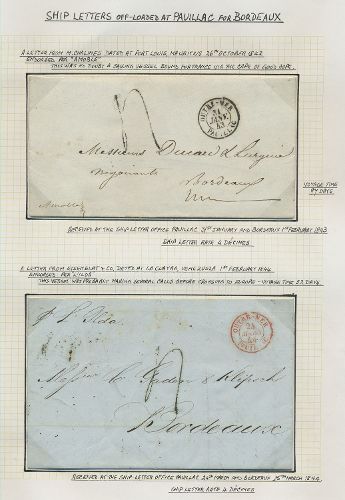 SHIP LETTERS OFF-LOADED AT PAUILLAC FOR BORDEAUX
A LETTER FROM M. CHALMES DATED AT PORT LOUIS, MAURITIUS 26TH OCTOBER 1842
ENDORSED PER "AMOBLE"
THIS WAS NO DOUBT A SAILING VESSEL BOUND FOR FRANCE VIA THE CAPE OF GOOD HOPE
OUTRE-MER
31
JANV
43
PAUILLAC
Messieurs Ducard &
Negociants
Bordeaux
VOYAGE TIME
97 DAYS.
RECEIVED AT THE SHIP LETTER OFFICE PAUILLAC 31ST JANUARY AND BORDEAUX 1ST FEBRUARY 1843
SHIP LETTER RATE 4 DECIMES
A LETTER FROM & CO, DATED AT LA GUAYRA, VENEZUELA 1ST FEBRUARY 1844
ENDORSED PER "ILDA"
THIS VESSEL WAS PROBABLY MAKING SEVERAL CALLS BEFORE CROSSING TO EUROPE - VOYAGE TIME 52 DAYS.
OUTRE-MER
24
MARS
44
p Ilda.
Messrs C. Gaden & Klipsch
Bordeaux
RECEIVED AT THE SHIP LETTER OFFICE PAUILLAC 24TH MARCH AND BORDEAUX 25TH MARCH 1844
SHIP LETTER RATE 4 DECIMES